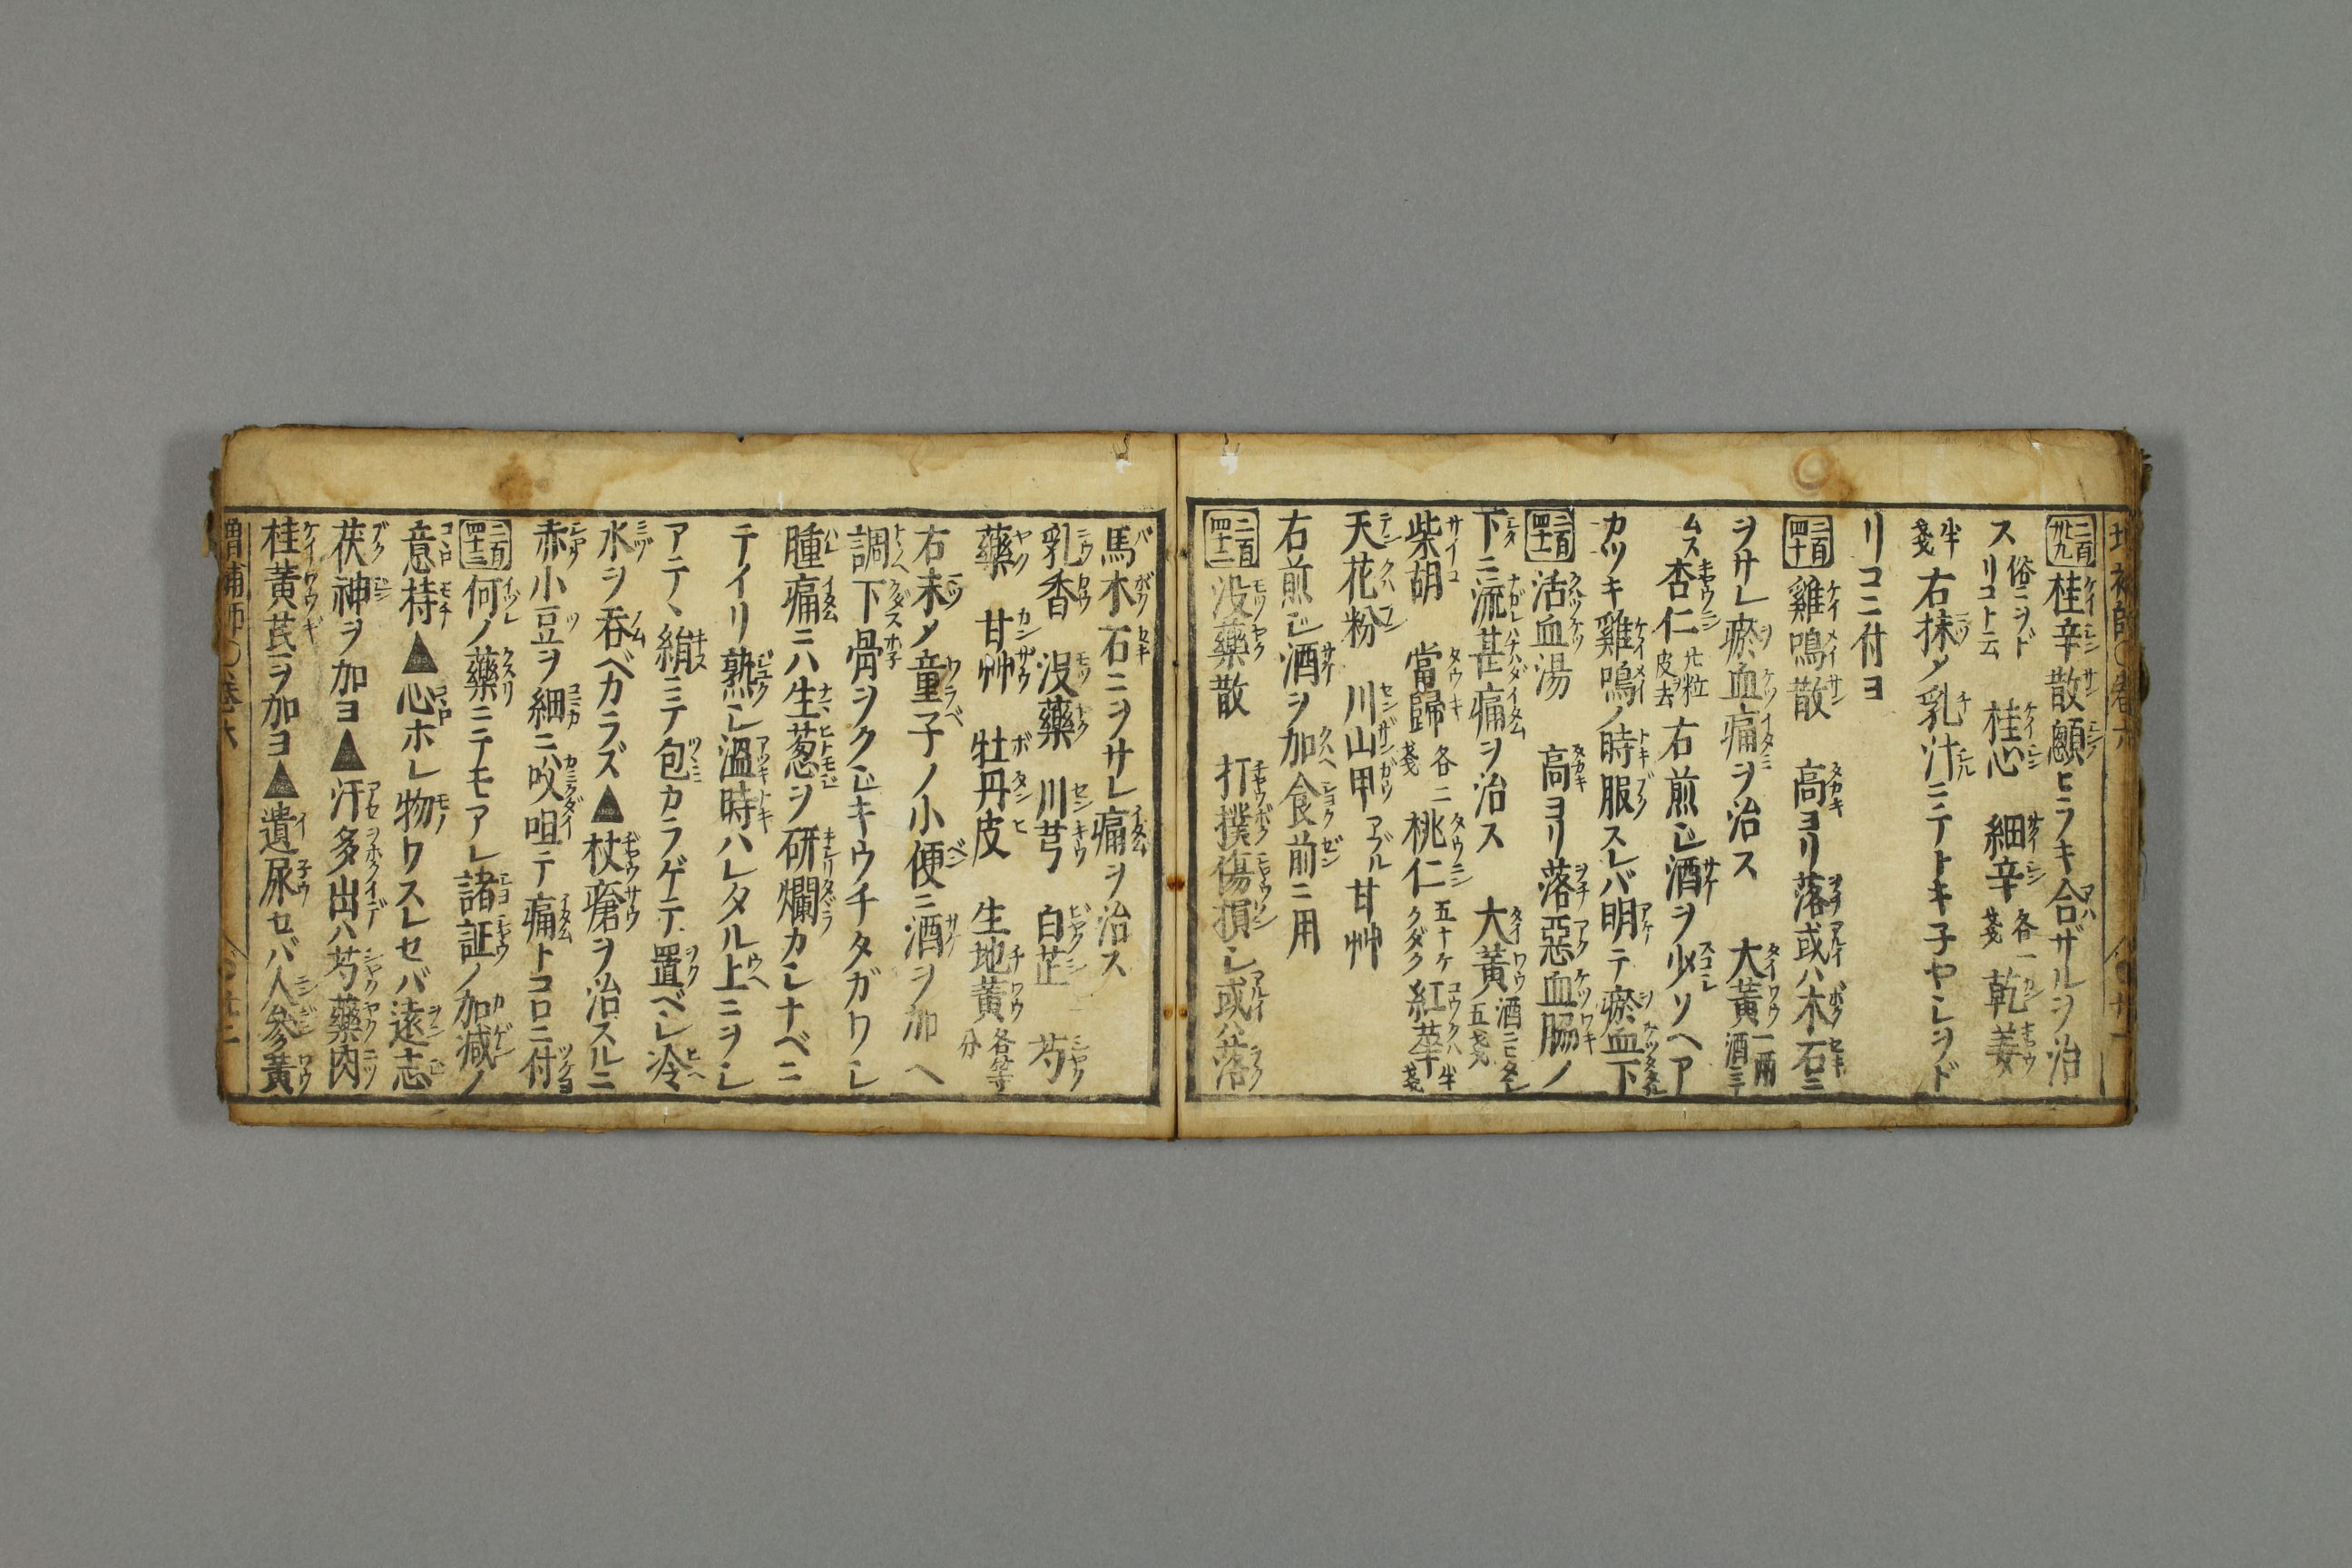 二百卅九 桂辛散 顖ヒラキ合ザルヲ治
ス 俗ニヲドリコト云 桂心 細辛 各一戔 乾姜
半戔 右抹メ乳汁ニテトキ子ヤシヲド
リコニ付ヨ
二百四十 雞鳴散 高ヨリ落或ハ木石ニ
ヲサレ瘀血痛ヲ治ス 大黃 一兩酒ニ
ムス 杏仁 廿粒皮去 右煎〆酒ヲ少ソヘア
カツキ雞鳴ノ時服スレバ明テ瘀血下
二百四十一 活血湯 高ヨリ落惡血脇ノ
下ニ流甚痛ヲ治ス 大黃 酒ニヒタシ五戔
柴胡 當歸 各二戔 桃仁 五十ケクダク 紅花 半戔
天花粉 川山甲 アブル 甘艸
右煎〆酒ヲ加食前ニ用
二百四十二 没藥散 打撲傷損シ或ハ落
馬木石ニヲサレ痛ヲ治ス
乳香 没藥 川芎 白芷 芍
藥 甘艸 牡丹皮 生地黃 各等分
右末メ童子ノ小便ニ酒ヲ加ヘ
調下骨ヲクジキウチタガワレ
腫痛ニハ生葱ヲ研爛カシナベニ
テイリ熟シ溫時ハレタル上ニヲシ
アテヽ絹ニテ包カラゲテ置ベシ冷
水ヲ呑ベカラズ▲杖瘡ヲ治スルニ
赤小豆ヲ細ニ㕮咀テ痛トコロニ付
二百四十三 何ノ藥ニテモアレ諸証ノ加減ノ
意持▲心ホレ物ワスレセバ遠志
茯神ヲ加ヨ▲汗多出ハ芍藥肉
桂黃芪ヲ加ヨ▲遺尿セバ人參黃